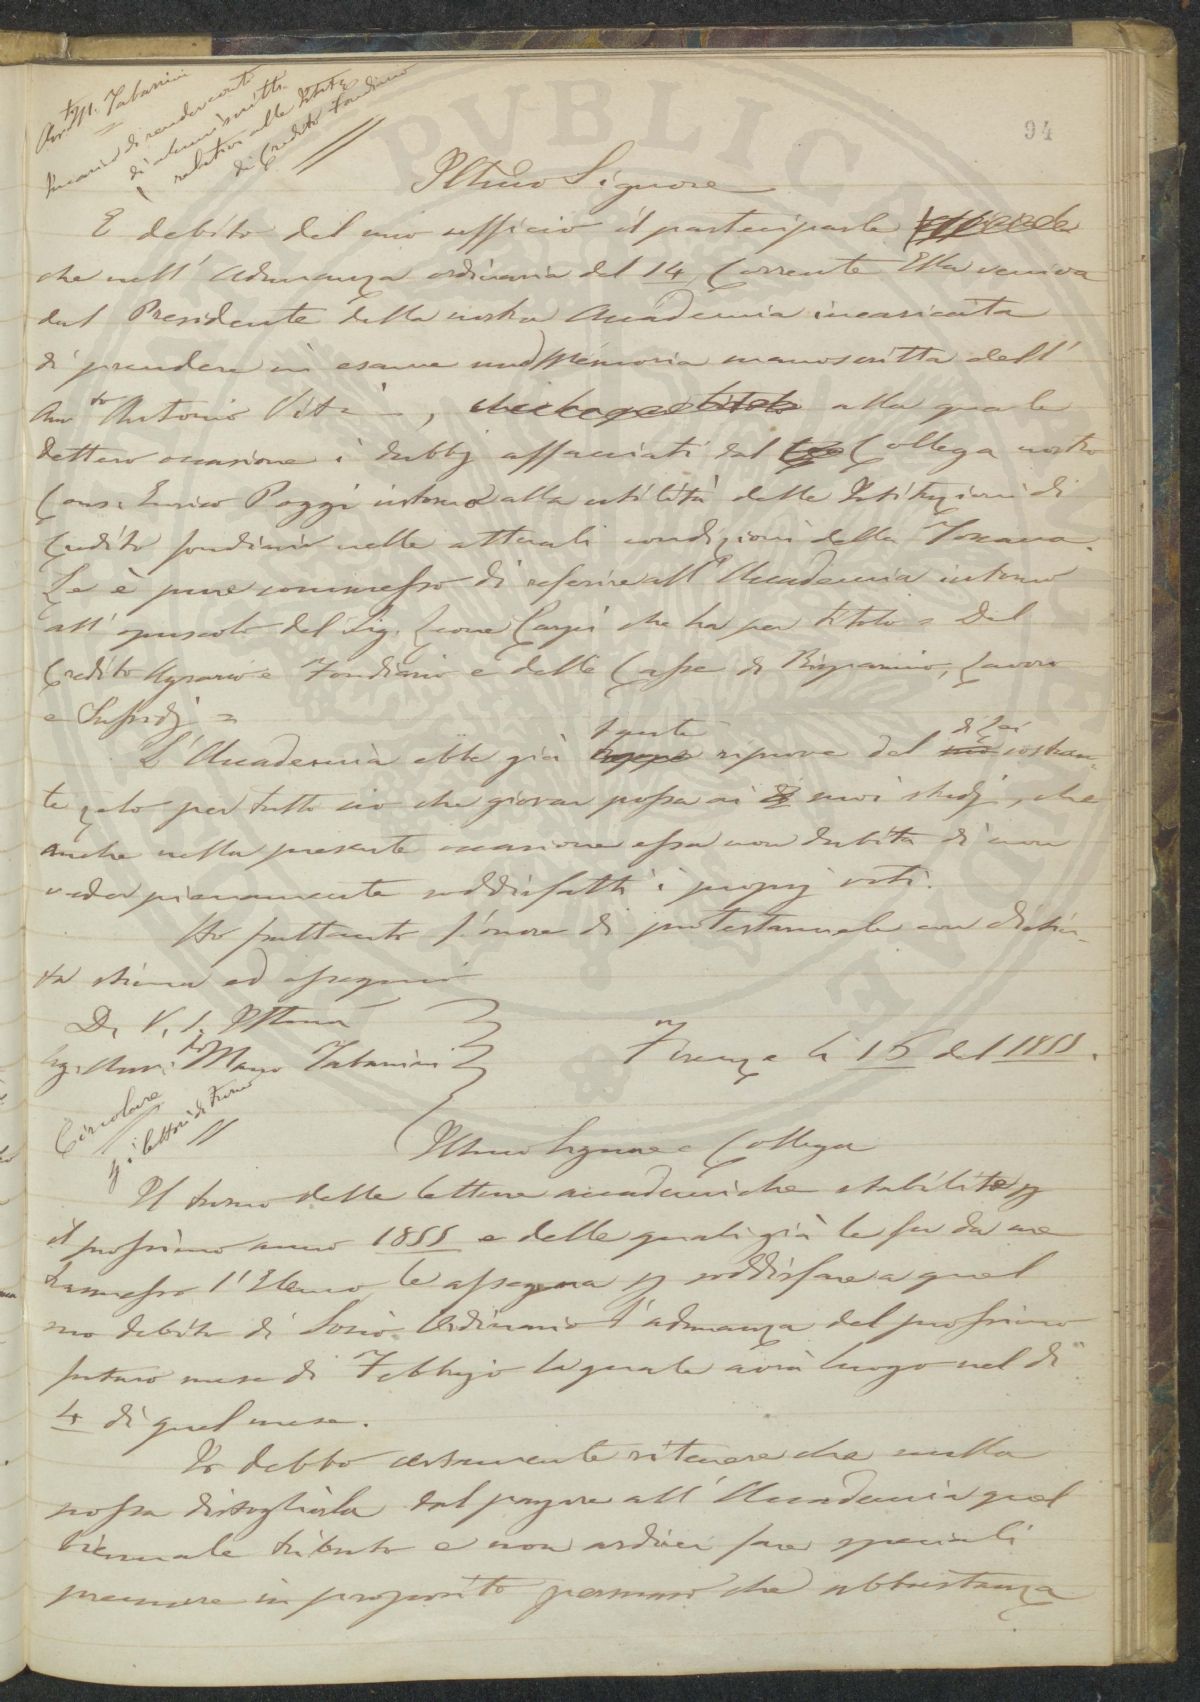 94
Avv. Tabarrini
Incarico di render conto
di alcuni scritti
relativi alle Istituz.
di Credito Fondiario
Illmo Signore
È debito del mio ufficio il parteciparle
che nell' Adunanza ordinaria del 14 Corrente Ella veniva
dal Presidente della nostra Accademia incaricata
di prendere in esame una Memoria manoscritta dell'
Avv. Antonio alla quale
dettero occasione i dubbj affacciati dal Collega nostro
Cons. Enrico Poggi intorno alla utilità delle Istituzioni di
Credito fondiario nelle attuali condizioni della Toscana.
Le è pure commesso di referire all' Accademia intorno
all' opuscolo del Sig. Leone Carpi che ha per titolo = Del
Credito Agrario e Fondiario e delle Casse di Risparmio, Lavoro
e Sussidj =
L'Accademia ebbe già riprove del di Lei costan-
te zelo per tutto ciò che giovar possa ai suoi studj, che
anche nella presente occasione essa non dubita di non
veder pienamente soddisfatti i proprj voti.
Ho frattanto l'onore di protestarmele con distin-
ta stima ed ossequio
D. V. S. Illma
Sig. Avv. Marco Tabarrini
Firenze li 16 del 1855.
Circolare
p. i lettori di turno
Illmo Signore e Collega
Il turno delle letture accademiche stabilito p
il prossimo anno 1855 e delle quali già le fu da me
trasmesso l'Elenco, le assegna p soddisfare a quel
suo debito di Socio Ordinario l'adunanza del prossimo
futuro mese di Febbrajo la quale avrà luogo nel dì
4 di quel mese.
Io debbo certamente ritenere che nulla
possa distoglierla dal pagare all' Accademia quel
biennale tributo e non ardirei fare speciali
premure in proposito persuaso che abbastanza